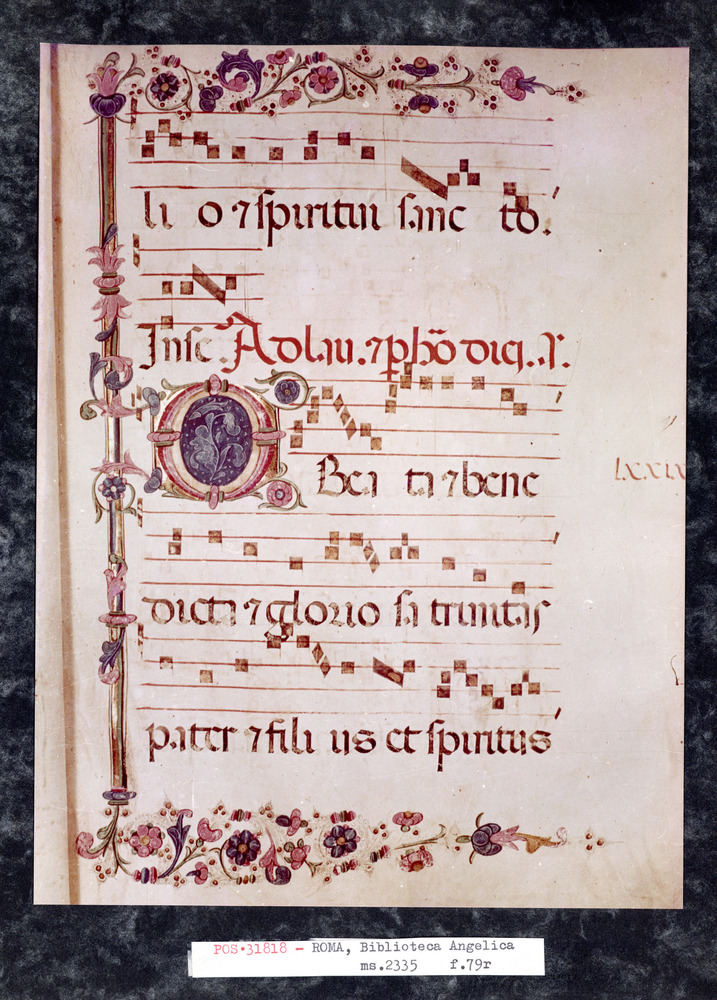 li o ⁊ spiritui sanc to.
Insc. Ad lau. ⁊ p hō dici. .℣.
O Bea ta ⁊ bene
LXXIX
dicta ⁊ glorio sa trinitas
pater ⁊ fili us et spiritus
POS·31818 - ROMA, Biblioteca Angelica
ms.2335 f.79r